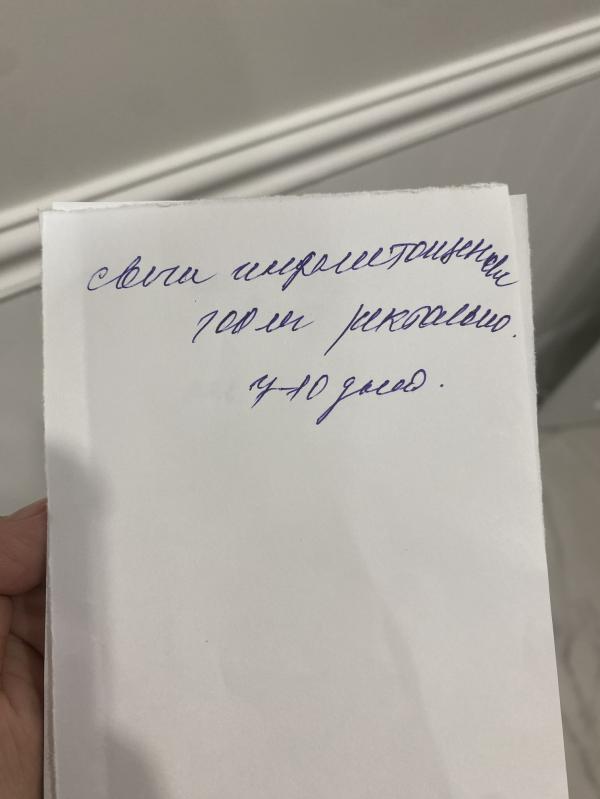 свечи индометациновые
100 мг ректально.
7-10 дней.